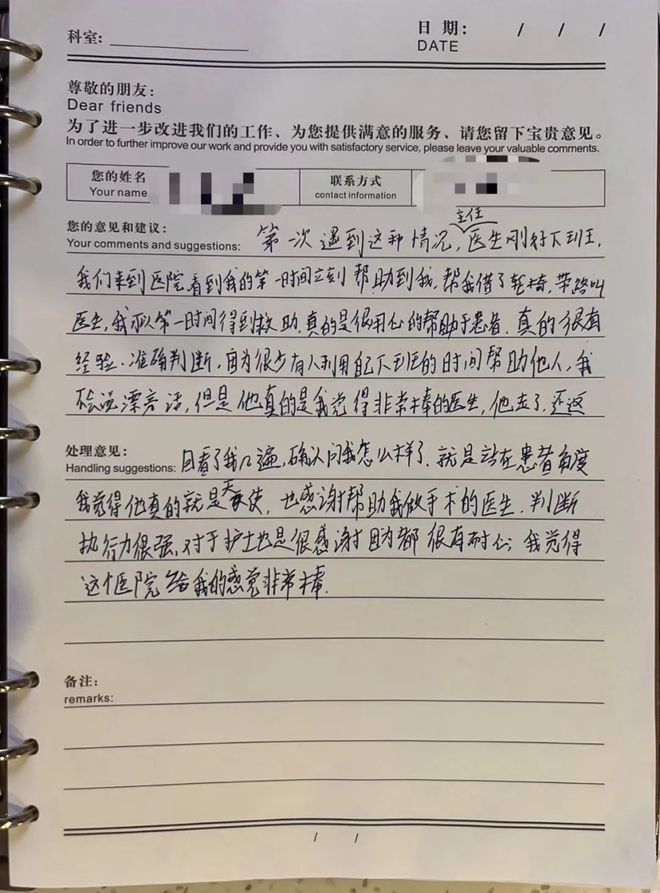 科室:
日 期: / / /
DATE
尊敬的朋友:
Dear friends
为了进一步改进我们的工作、为您提供满意的服务、请您留下宝贵意见。
In order to further improve our work and provide you with satisfactory service, please leave your valuable comments.
您的姓名
Your name
联系方式
contact information
您的意见和建议:
Your comments and suggestions:
主任
第一次遇到这种情况,医生刚好下班,
我们来到医院看到我的第一时间立刻帮助到我,帮我借了轮椅,带路叫
医生,我第一时间得到救助,真的是很用心的帮助于患者,真的很有
经验.准确判断,因为很少有人利用自己下班的时间帮助他人,我
不会说漂亮话,但是他真的是我觉得非常棒的医生,他走了,还返
处理意见:
Handling suggestions:
回看了我几遍,确认问我怎么样了.就是站在患者角度
我觉得他真的就是天使,也感谢帮助我做手术的医生.判断
执行力很强,对于护士也是很感谢因为都很有耐心,我觉得
这个医院给我的感觉非常棒.
备注:
remarks:
/ /